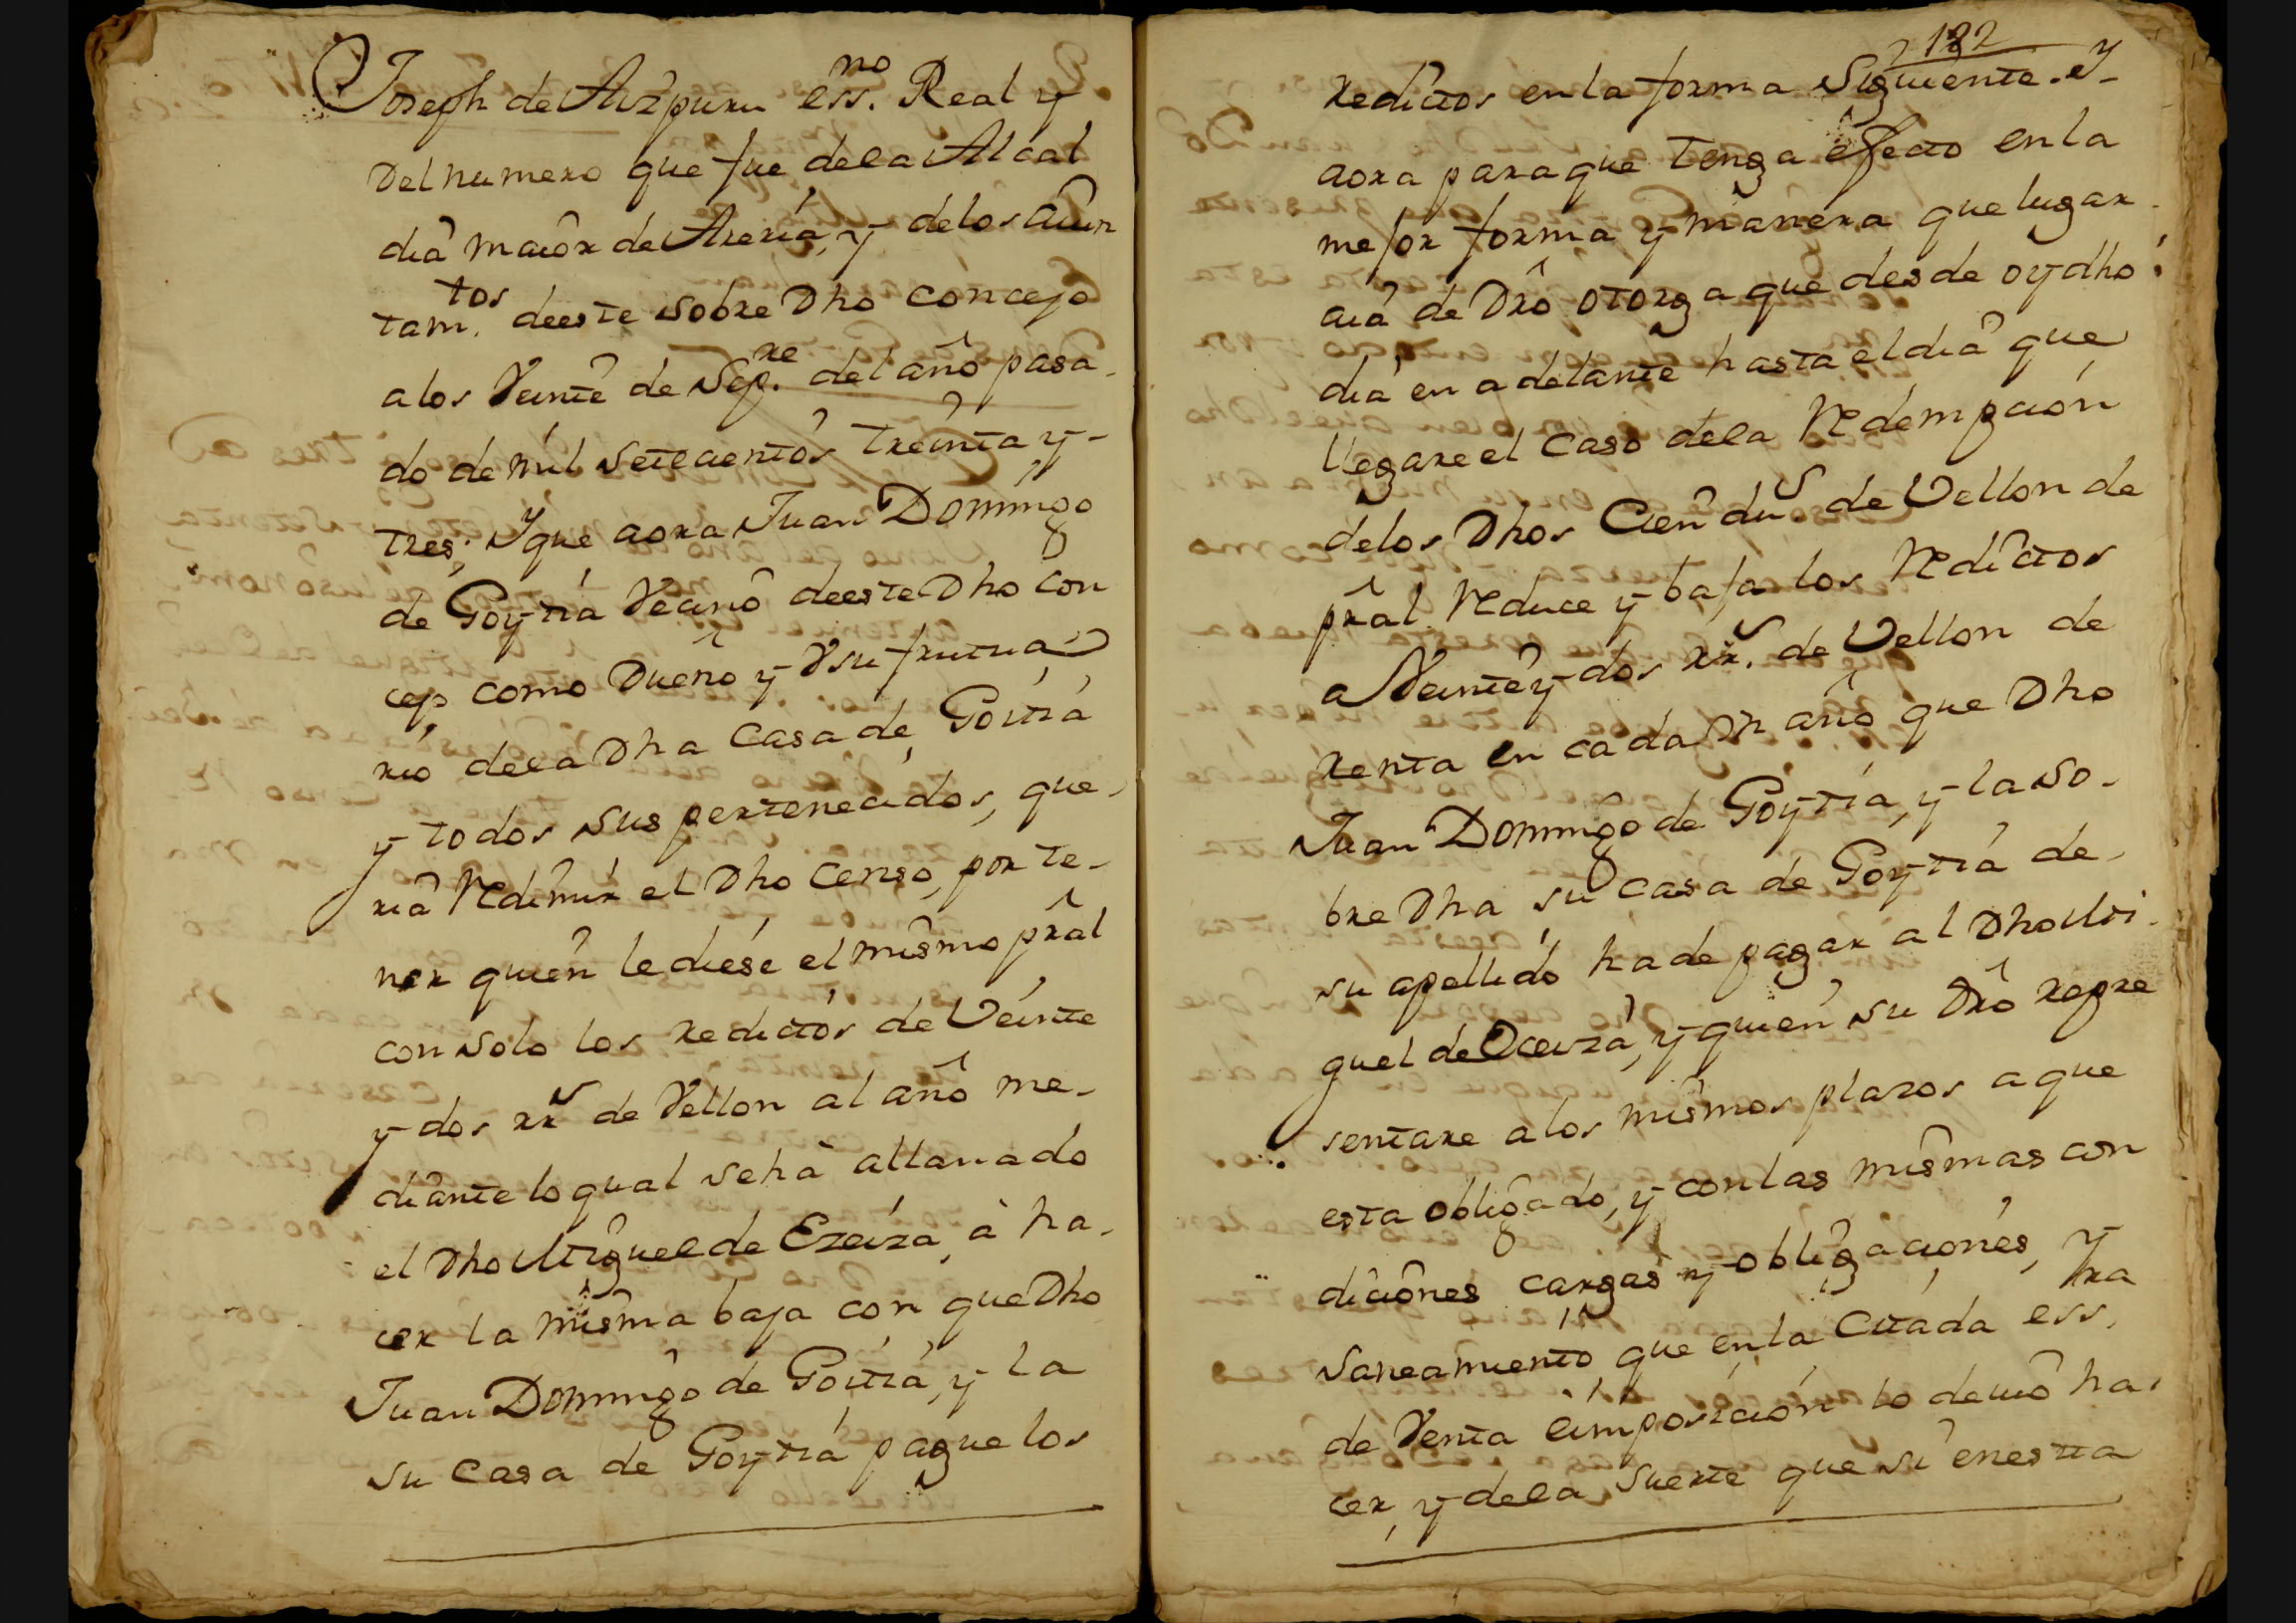 Joseph de Aizpuru ess.no Real y
del numero que fue dela Alcal
dia maior de Areria, y delos aiun
tam.tos deeste sobre dho concejo
alos Veinte de Sep.re del año pasa-
do de mil setecientos treinta y-
tres; Y que aora Juan Domingo
de Goytia Vecino deeste dho con
cejo como Dueño y Vsufrutua
rio dela dha Casa de Goitia
y todos sus pertenecidos, que-
ria Redimir el dho Censo, por te-
ner quien le diese el mismo pral
con solo los redictos de Veinte
y dos rrs de Vellon al año me-
diante lo qual se hà allanado
el dho Miguel de Ezeiza, à ha-
cer la misma baja con que dho
Juan Domingo de Goitia, y la
su Casa de Goytia pague los
182
redictos en la forma Siguiente. Y-
aora para que tenga efecto en la
mejor forma y manera que lugar
aia de Dro otorga que desde oy dho
dia en adelante hasta el dia que
llegare el Caso dela Redempcion
delos dhos Cien dus. de Vellon de
pral. Reduce y baja los Redictos
a Veinte y dos rrs. de Vellon de
renta en cada Vn año que dho
Juan Domingo de Goytia, y la so-
bre dha su Casa de Goytia de-
su apellido ha de pagar al dho Mi-
guel de Eceiza, y quien su Dro repre
sentare alos mismos plazos a que
esta obligado, y con las mismas con
diciones cargas y obligaciones, Y
saneamiento que en la Citada ess.ra
de Venta eimposicion lo deuio ha-
cer, y dela suerte que si en esta